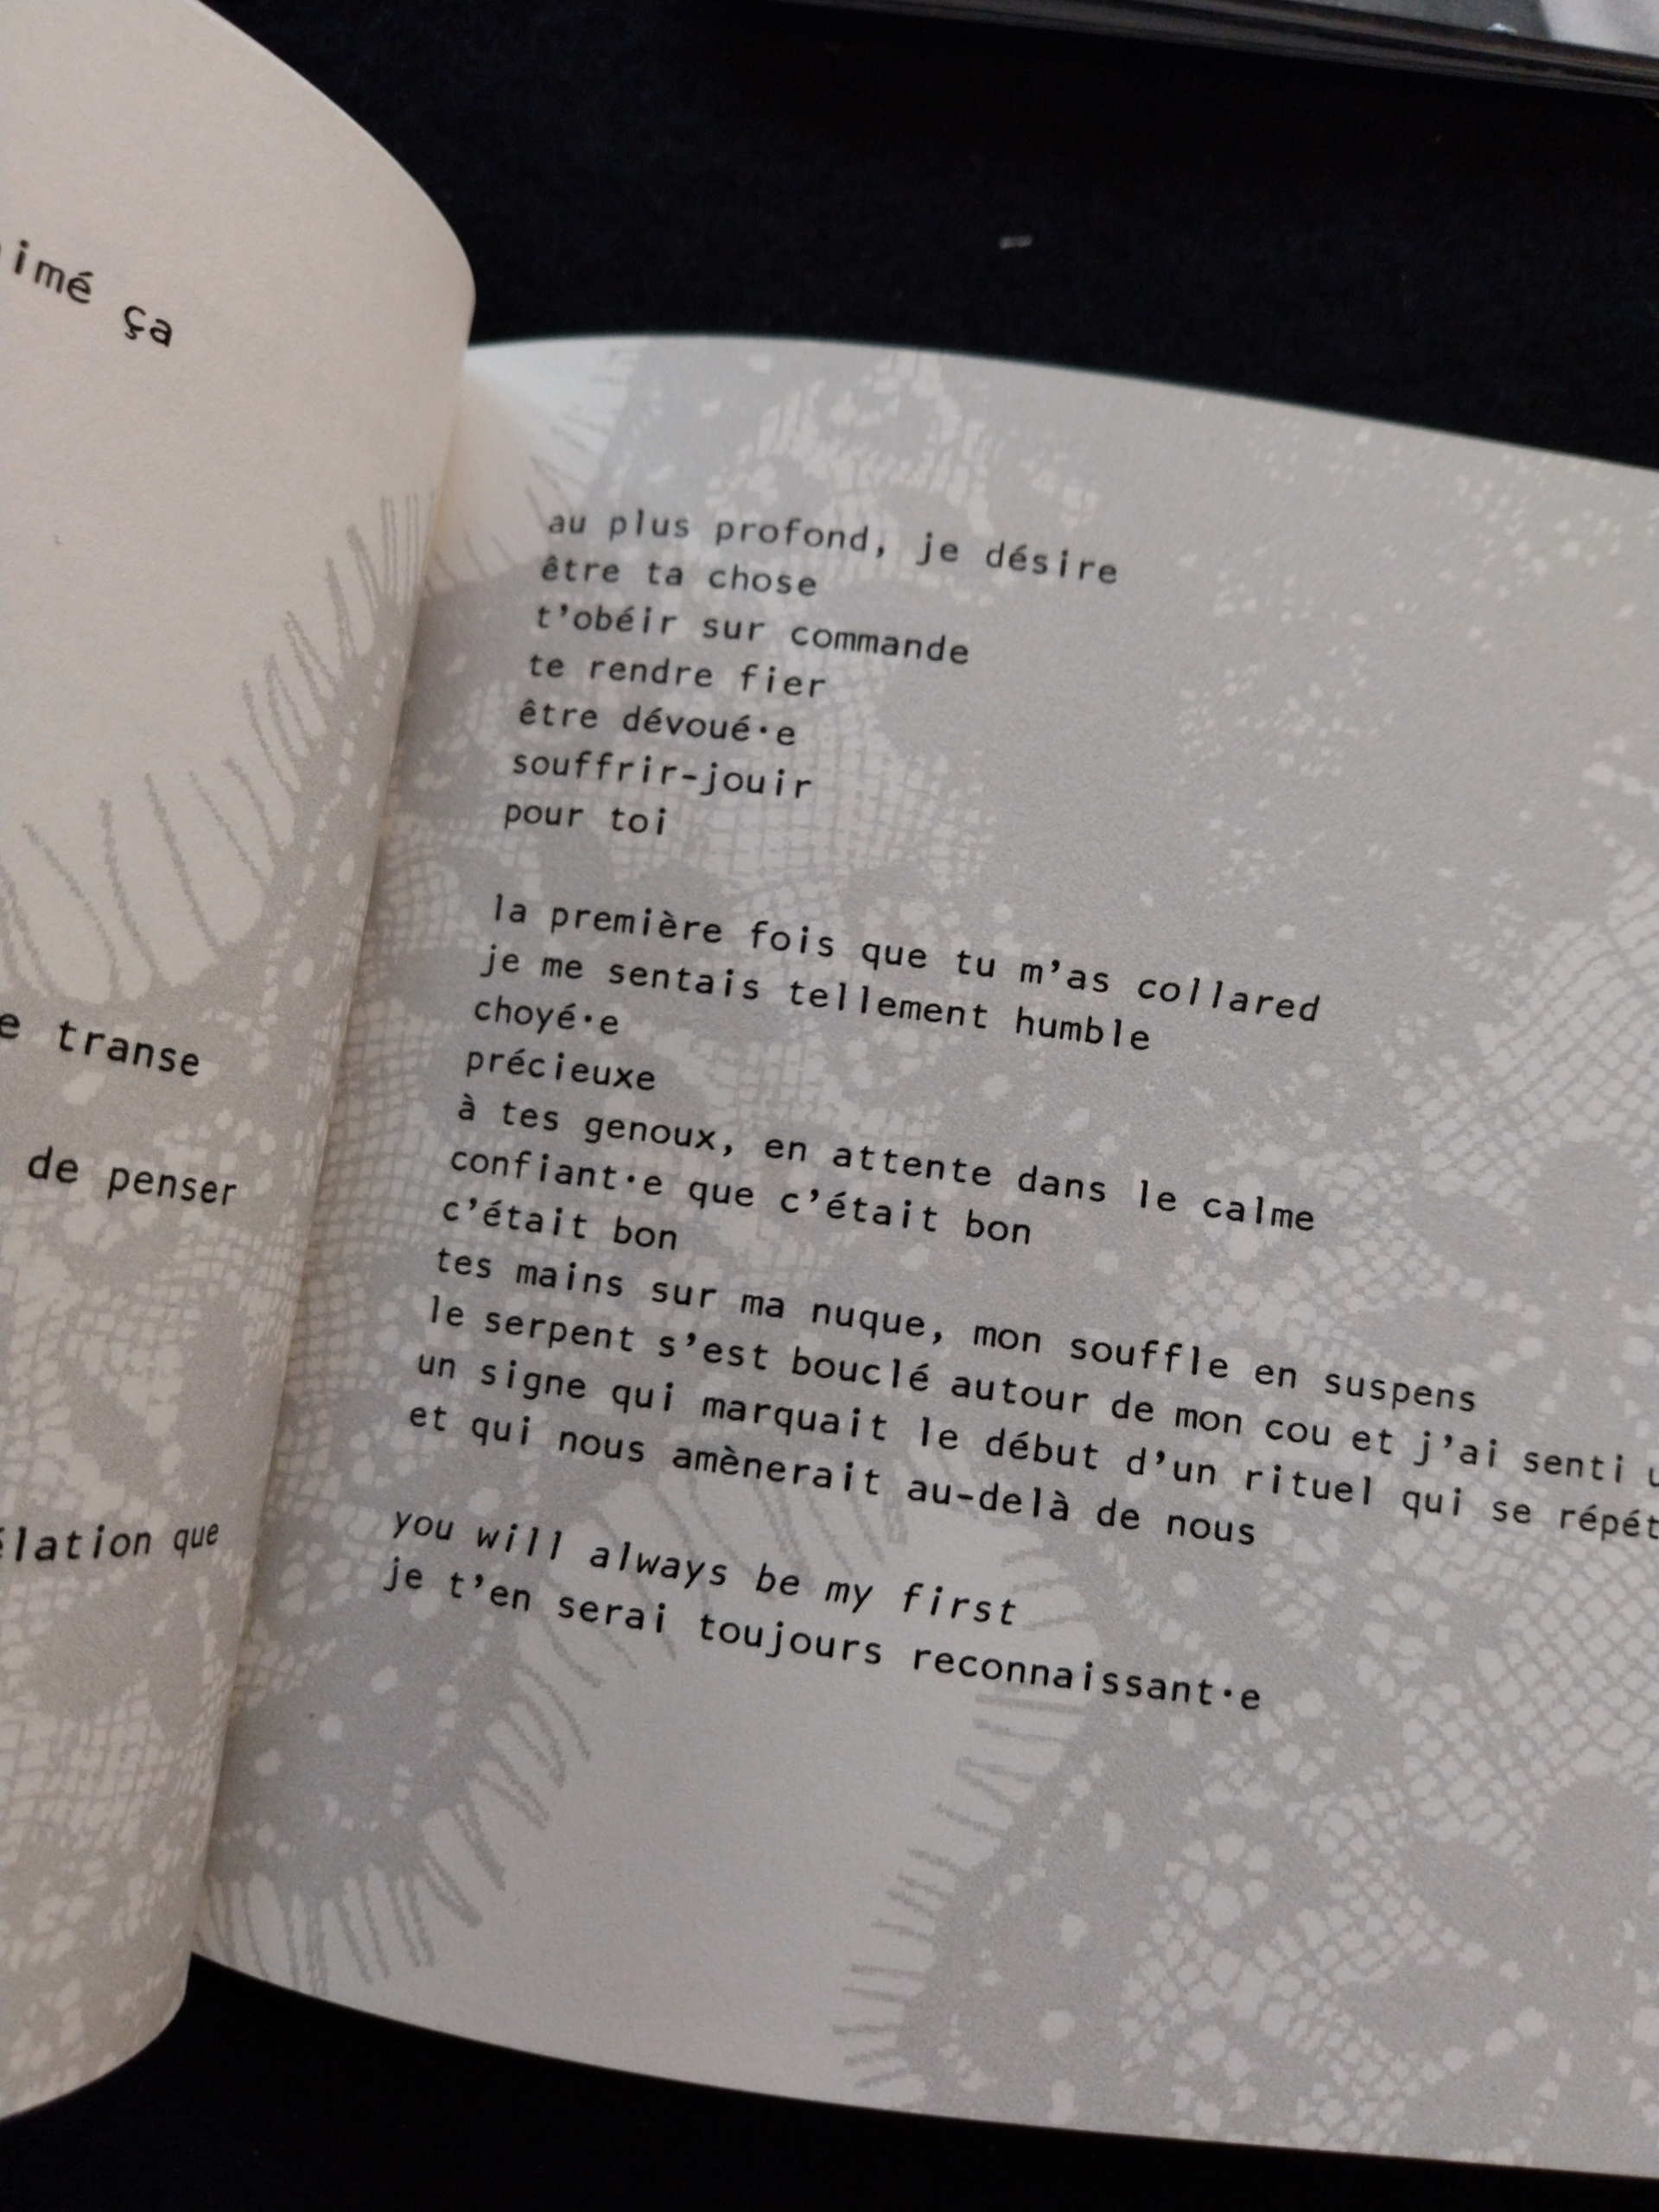 imé ça
e transe
de penser
élation que
au plus profond, je désire
être ta chose
t’obéir sur commande
te rendre fier
être dévoué·e
souffrir-jouir
pour toi
la première fois que tu m’as collared
je me sentais tellement humble
choyé·e
précieuxe
à tes genoux, en attente dans le calme
confiant·e que c’était bon
c’était bon
tes mains sur ma nuque, mon souffle en suspens
le serpent s’est bouclé autour de mon cou et j’ai senti
un signe qui marquait le début d’un rituel qui se répét
et qui nous amènerait au-delà de nous
you will always be my first
je t’en serai toujours reconnaissant·e